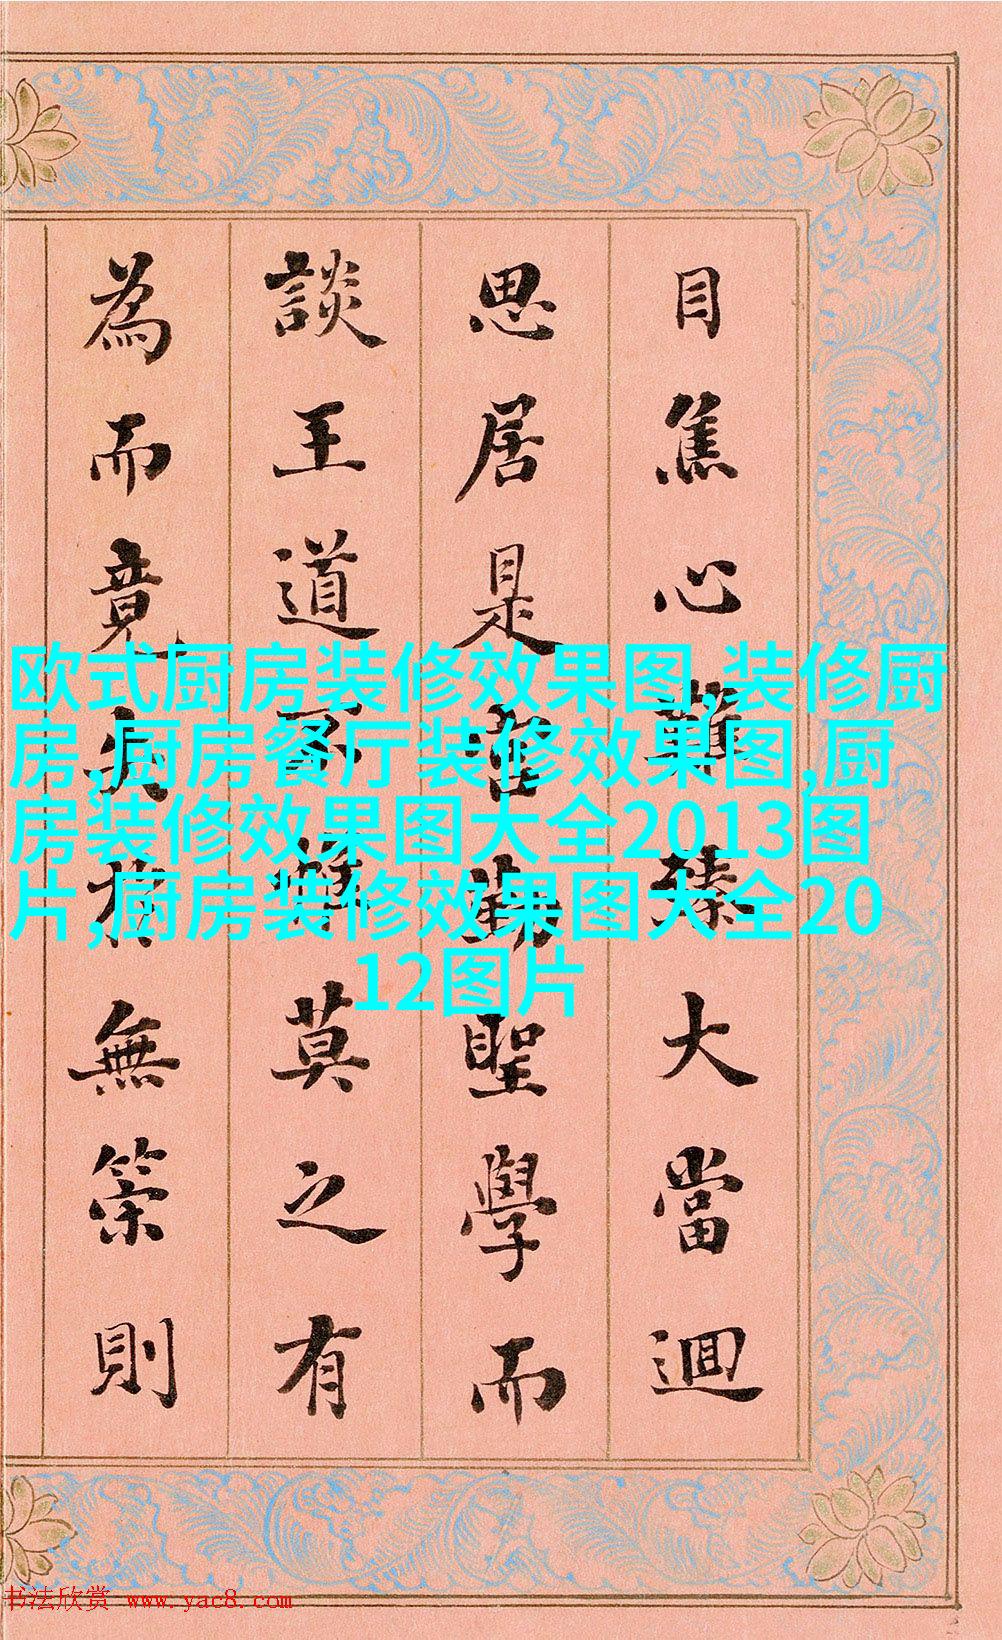 目焦心臻大當迴
思居是聖學而
談王道不莫之有
為而竟失於無策則
欧式厨房装修效果图,装修厨
房,厨房餐厅装修效果图,厨
房装修效果图大全2013图
片,厨房装修效果图大全20
12图片
书法欣赏 www.yac8.com